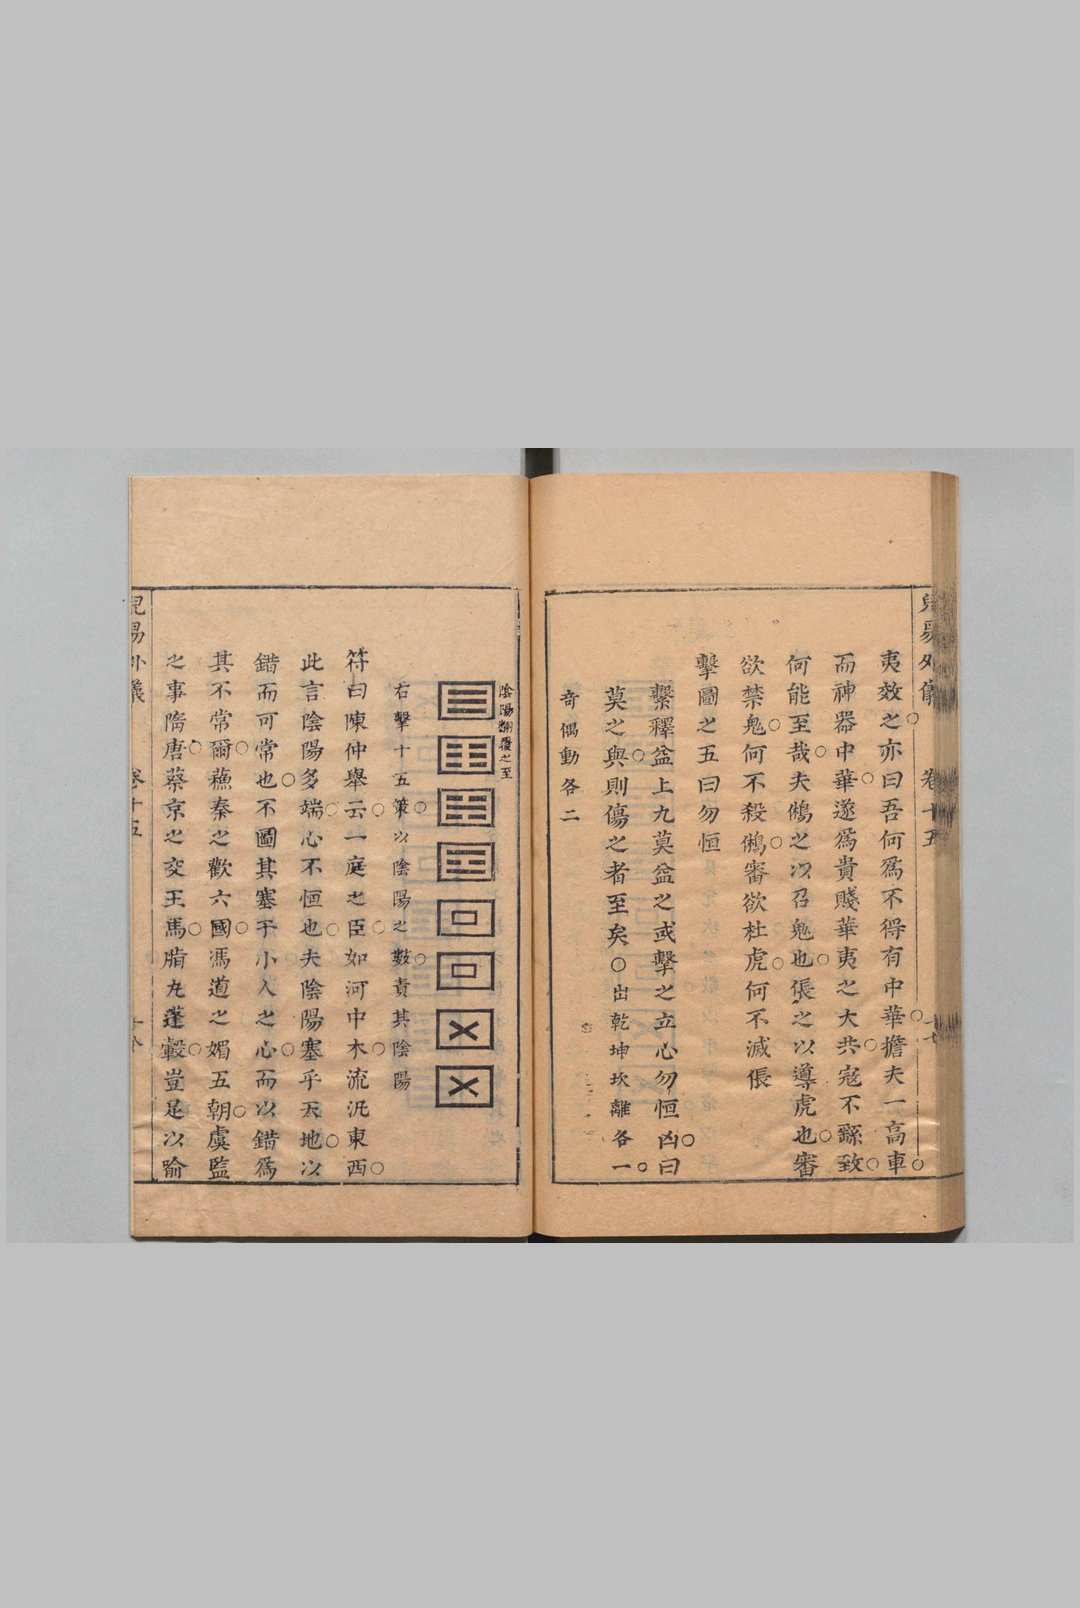 兒易外儀 卷十五
夷效之亦曰吾何爲不得有中華擔夫一高車
而神器中華遂爲貴賤華夷之大共寇不繇致
何能至哉夫鵂之以召鬼也倀之以導虎也審
欲禁鬼何不殺鵂審欲杜虎何不滅倀
擊圖之五曰勿恒
繫釋益上九莫益之或擊之立心勿恒凶曰
莫之與則傷之者至矣○出乾坤坎離各一
奇偶動各二
陰陽翻覆之至
右擊十五策以陰陽之數責其陰陽
符曰陳仲舉云一庭之臣如河中木流汎東西
此言陰陽多端心不恒也夫陰陽塞乎天地以
錯而可常也不圖其塞于小人之心而以錯爲
其不常爾蘓秦之歡六國馮道之媚五朝虞監
之事隋唐蔡京之交王馬脂丸蓬轂豈足以喻
兒易外儀 卷十五 十八